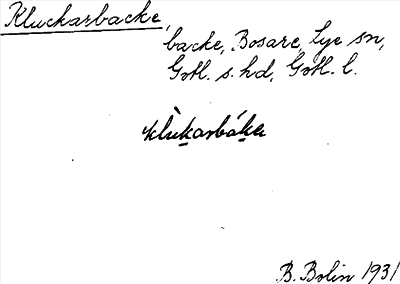 Kluckarbacke,
backe, Bosare, Lye sn,
Gotl. s. hd, Gotl. l.
klùkarbáka
B. Bolin 1931